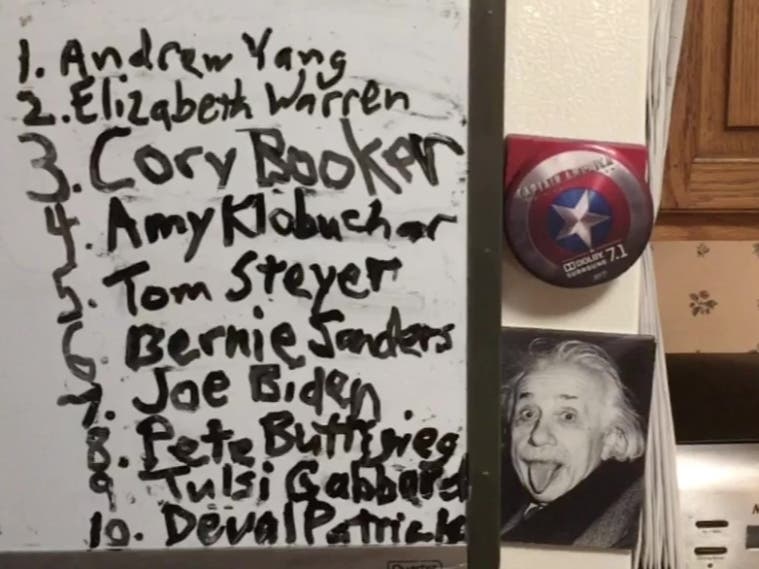 1. Andrew Yang
2. Elizabeth Warren
3. Cory Booker
4. Amy Klobuchar
5. Tom Steyer
6. Bernie Sanders
7. Joe Biden
8. Pete Buttigieg
9. Tulsi Gabbard
10. Deval Patrick
CAPTAIN AMERICA
DOLBY
SURROUND 7.1